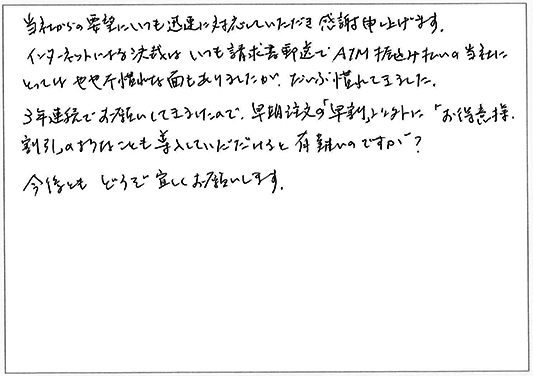 当社からの要望にいつも迅速に対応していただき感謝申し上げます。
インターネットによる決裁は いつも請求書郵送で ATM振込み払いの当社に
とっては やや不慣れな面もありましたが、だいぶ慣れてきました。
3年連続でお願いしてきましたので、早期注文の「早割」以外に「お得意様
割引」のようなことも導入していただけると 有難いのですが？
今後とも どうぞ宜しくお願いします。